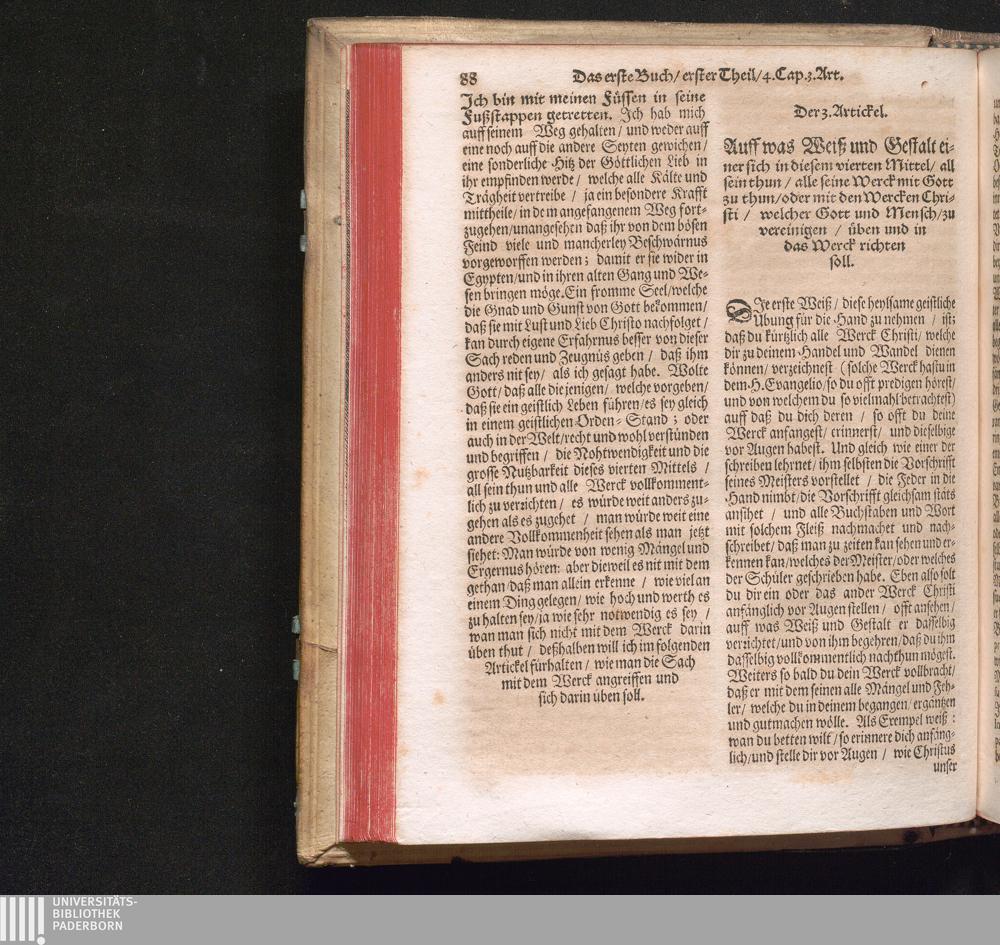 88
Das erste Buch/ erster Theil/ 4. Cap. 3. Art.
Ich bin mit meinen Füssen in seine
Fußstappen getretten. Ich hab mich
auff seinem Weg gehalten/ und weder auff
eine noch auff die andere Seyten gewichen/
eine sonderliche Hitz der Göttlichen Lieb in
ihr empfinden werde / welche alle Kälte und
Trägheit vertreibe / ja ein besondere Krafft
mittheile/ in dem angefangenem Weg fort-
zugehen/unangesehen daß ihr von dem bösen
Feind viele und mancherley Beschwärnus
vorgeworffen werden; damit er sie wider in
Egypten/und in ihren alten Gang und We-
sen bringen möge. Ein fromme Seel/welche
die Gnad und Gunst von Gott bekommen/
daß sie mit Lust und Lieb Christo nachfolget /
kan durch eigene Erfahrnus besser von dieser
Sach reden und Zeugnüs geben / daß ihm
anders nit sey/ als ich gesagt habe. Wolte
Gott/ daß alle die jenigen/ welche vorgeben/
daß sie ein geistlich Leben führen/ es sey gleich
in einem geistlichen Orden- Stand ; oder
auch in der Welt/recht und wohl verstünden
und begriffen / die Nohtwendigkeit und die
grosse Nutzbarkeit dieses vierten Mittels /
all sein thun und alle Werck vollkomment-
lich zu verzichten / es würde weit anders zu-
gehen als es zugehet / man würde weit eine
andere Vollkommenheit sehen als man jetzt
siehet: Man würde von wenig Mängel und
Ergernus hören: aber dieweil es nit mit dem
gethan/daß man allein erkenne / wie viel an
einem Ding gelegen/ wie hoch und werth es
zu halten sey/ja wie sehr notwendig es sey /
wan man sich nicht mit dem Werck darin
üben thut / deßhalben will ich im folgenden
Artickel fürhalten / wie man die Sach
mit dem Werck angreiffen und
sich darin üben soll.
Der 3. Artickel.
Auff was Weiß und Gestalt ei-
ner sich in diesem vierten Mittel/ all
sein thun / alle seine Werck mit Gott
zu thun/oder mit den Wercken Chri-
sti / welcher Gott und Mensch/zu
vereinigen / üben und in
das Werck richten
soll.
DJe erste Weiß / diese heylsame geistliche
Ubung für die Hand zu nehmen / ist;
daß du kürtzlich alle Werck Christi/ welche
dir zu deinem Handel und Wandel dienen
können/ verzeichnest (solche Werck hastu in
dem H. Evangelio/so du offt predigen hörest/
und von welchem du so vielmahl betrachtest)
auff daß du dich deren / so offt du deine
Werck anfangest/ erinnerst/ und dieselbige
vor Augen habest. Und gleich wie einer der
schreiben lehrnet/ ihm selbsten die Vorschrifft
seines Meisters vorstellet / die Feder in die
Hand nimbt/die Vorschrifft gleichsam stäts
ansihet / und alle Buchstaben und Wort
mit solchem Fleiß nachmachet und nach-
schreibet/ daß man zu zeiten kan sehen und er-
kennen kan/welches der Meister/oder welches
der Schüler geschrieben habe. Eben also solt
du dir ein oder das ander Werck Christi
anfänglich vor Augen stellen / offt ansehen/
auff was Weiß und Gestalt er dasselbig
verzichtet/und von ihm begehren/daß du ihm
dasselbig vollkommentlich nachthun mögest.
Weiters so bald du dein Werck vollbracht/
daß er mit dem seinen alle Mängel und Feh-
ler/ welche du in deinem begangen/ ergäntzen
und gutmachen wölle. Als Exempel weiß :
wan du betten wilt/ so erinnere dich anfäng-
lich/und stelle dir vor Augen / wie Christus
unser
UNIVERSITÄTS-
BIBLIOTHEK
PADERBORN